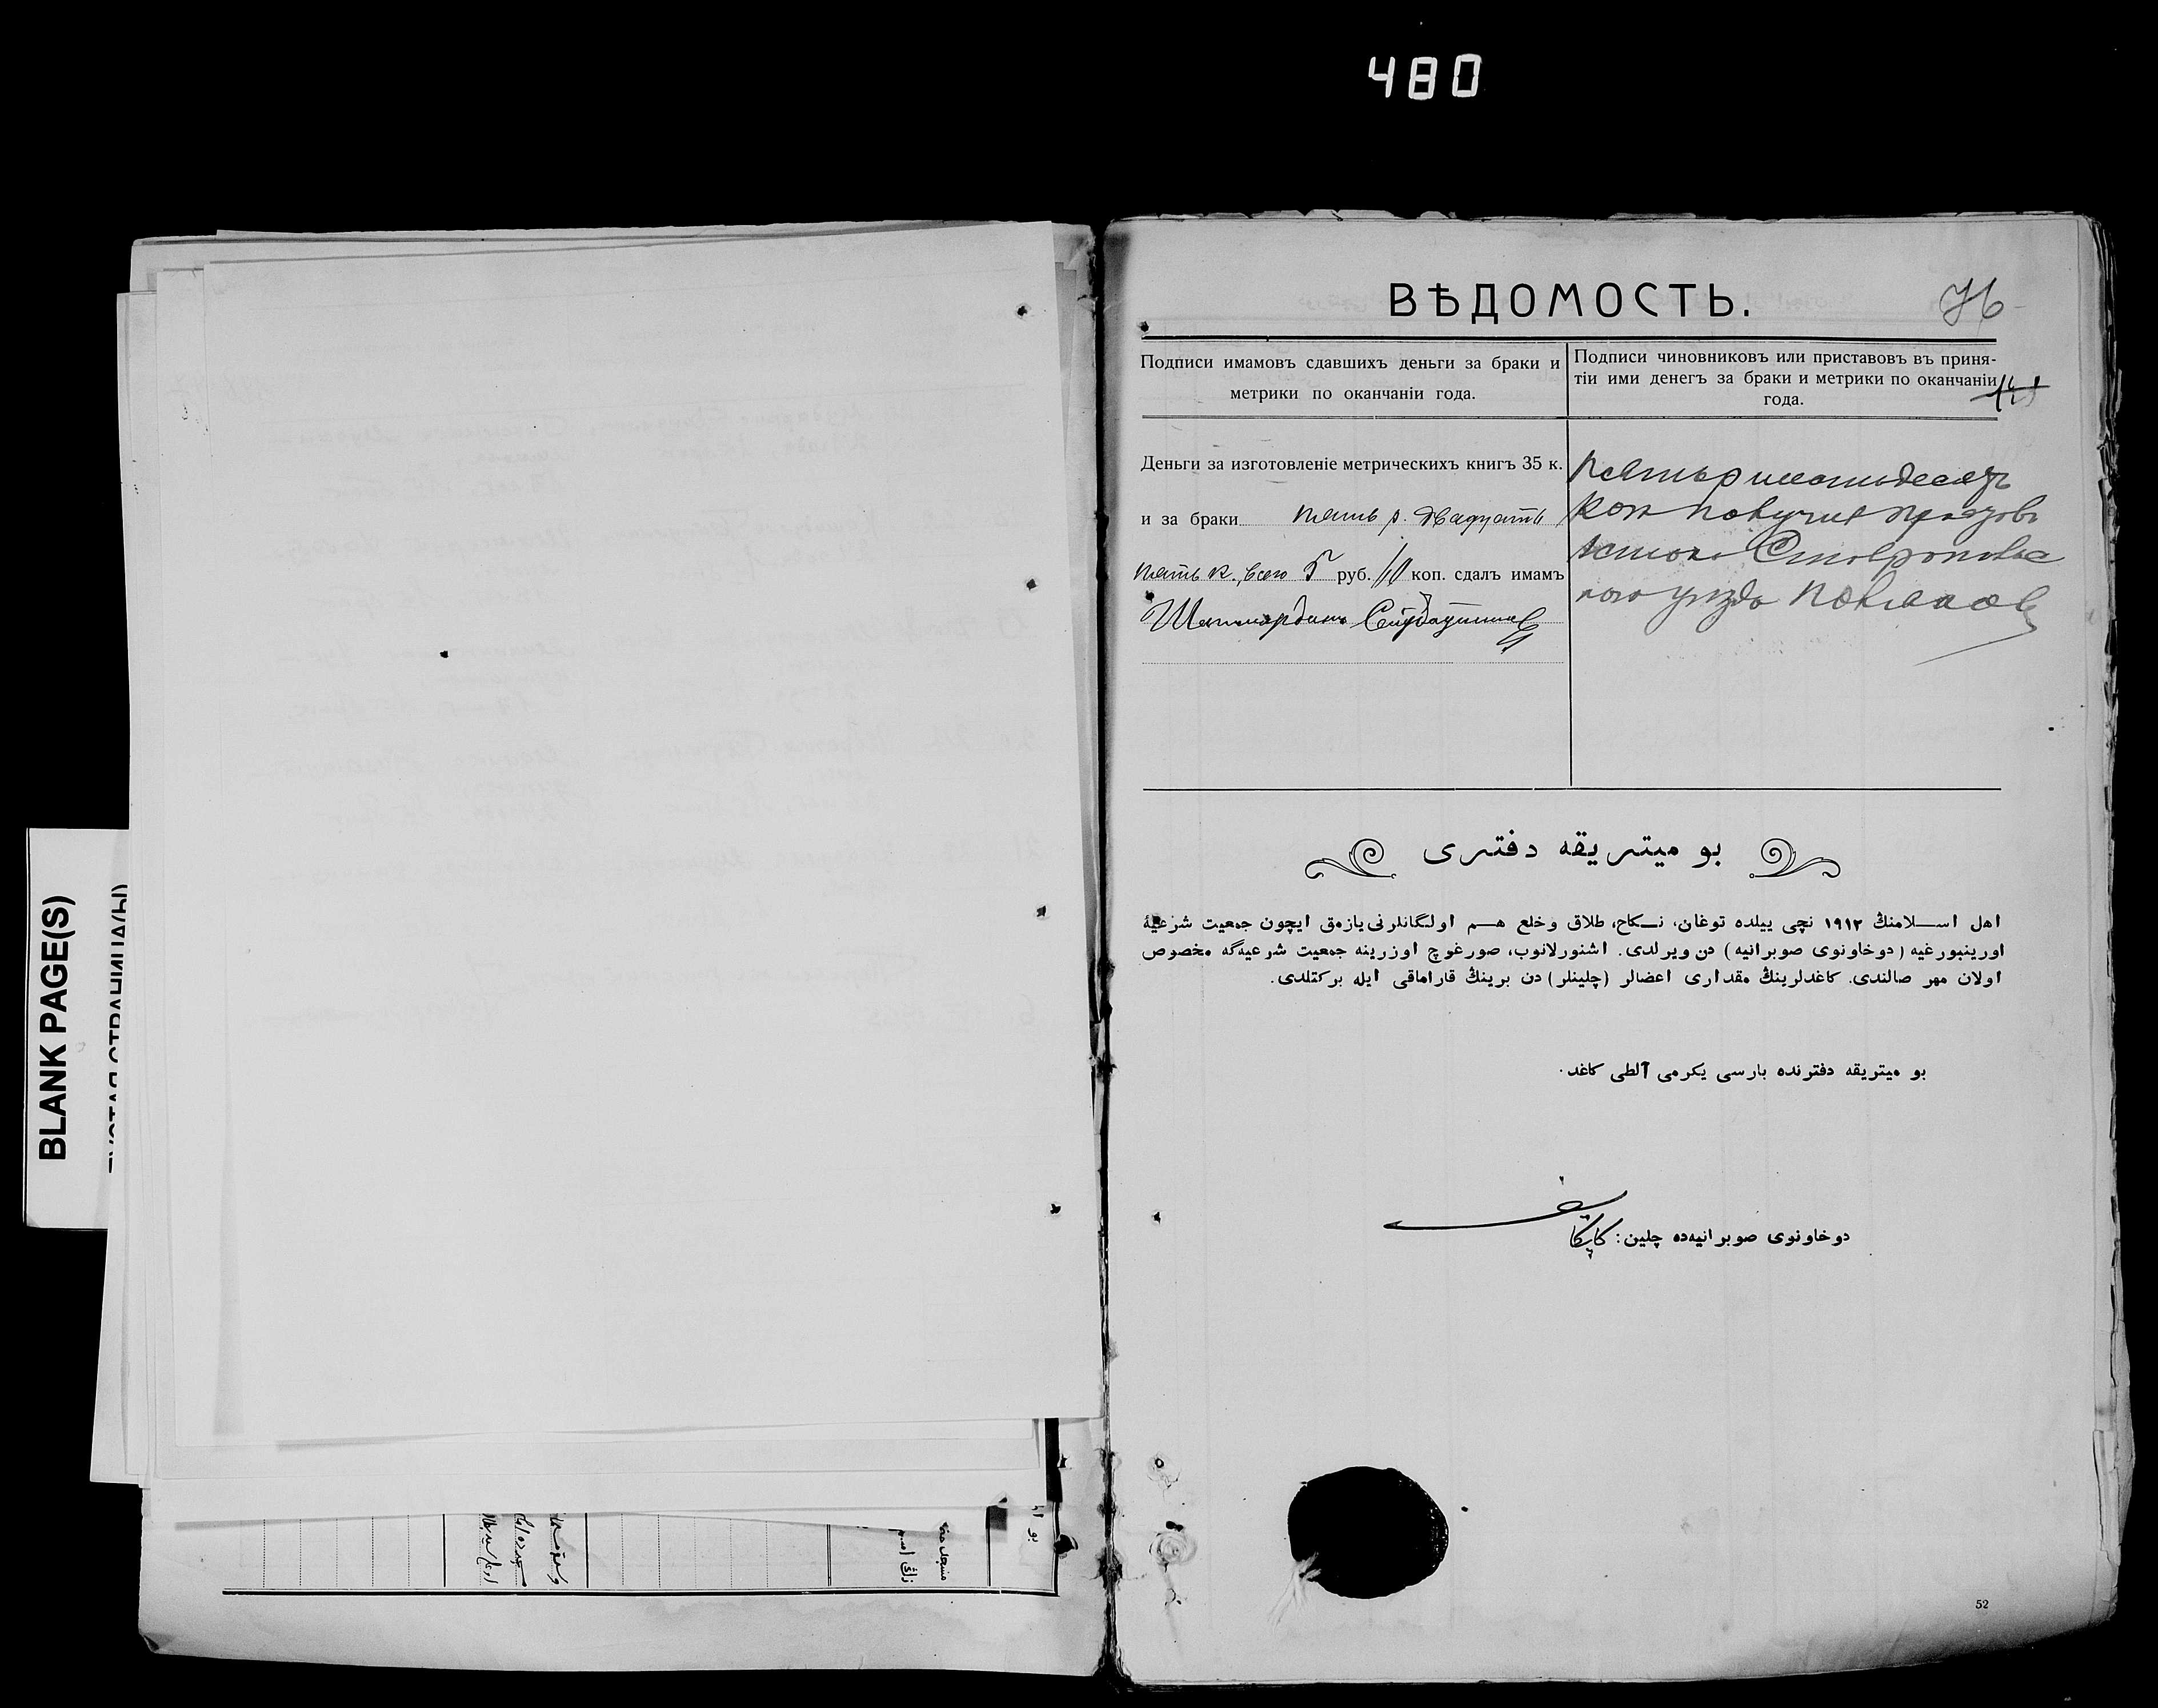 480
BLANK PAGE(S)
ВѢДОМОСТЬ.
76
Подписи имамовъ сдавшихъ деньги за браки и
метрики по оканчаніи года.
Подписи чиновниковъ или приставовъ въ приня-
тіи ими денегъ за браки и метрики по оканчаніи
года.
Деньги за изготовленіе метрическихъ книгъ 35 к.
и за браки пять р. двадцать
пять к., всего 5 руб. 60 коп. сдалъ имамъ
Шагимарданъ
Пять р шестьдесятъ
коп получилъ приставъ
стана Ставропольс
каго уѣзда
بو ميتريقه دفترى
اهل اسلامنڭ ١٩١٢ نچى ييلده توغان، نكاح، طلاق وخلع هم اولگانلرنى يازمق ايچون جمعيت شرعيهٔ
اورينبورغيه (دوخاونوى صوبرانيه) دن ويرلدى. اشنورلانوب، صورغوچ اوزرينه جمعيت شرعيه‌گه مخصوص
اولان مهر صالندى. كاغدلرينڭ مقدارى اعضالر (چلينلر) دن برينڭ قاراماقى ايله بركتلدى.
بو ميتريقه دفترنده بارسى يكرمى آلطى كاغد.
دوخاونوى صوبرانيه‌ده چلين:
52